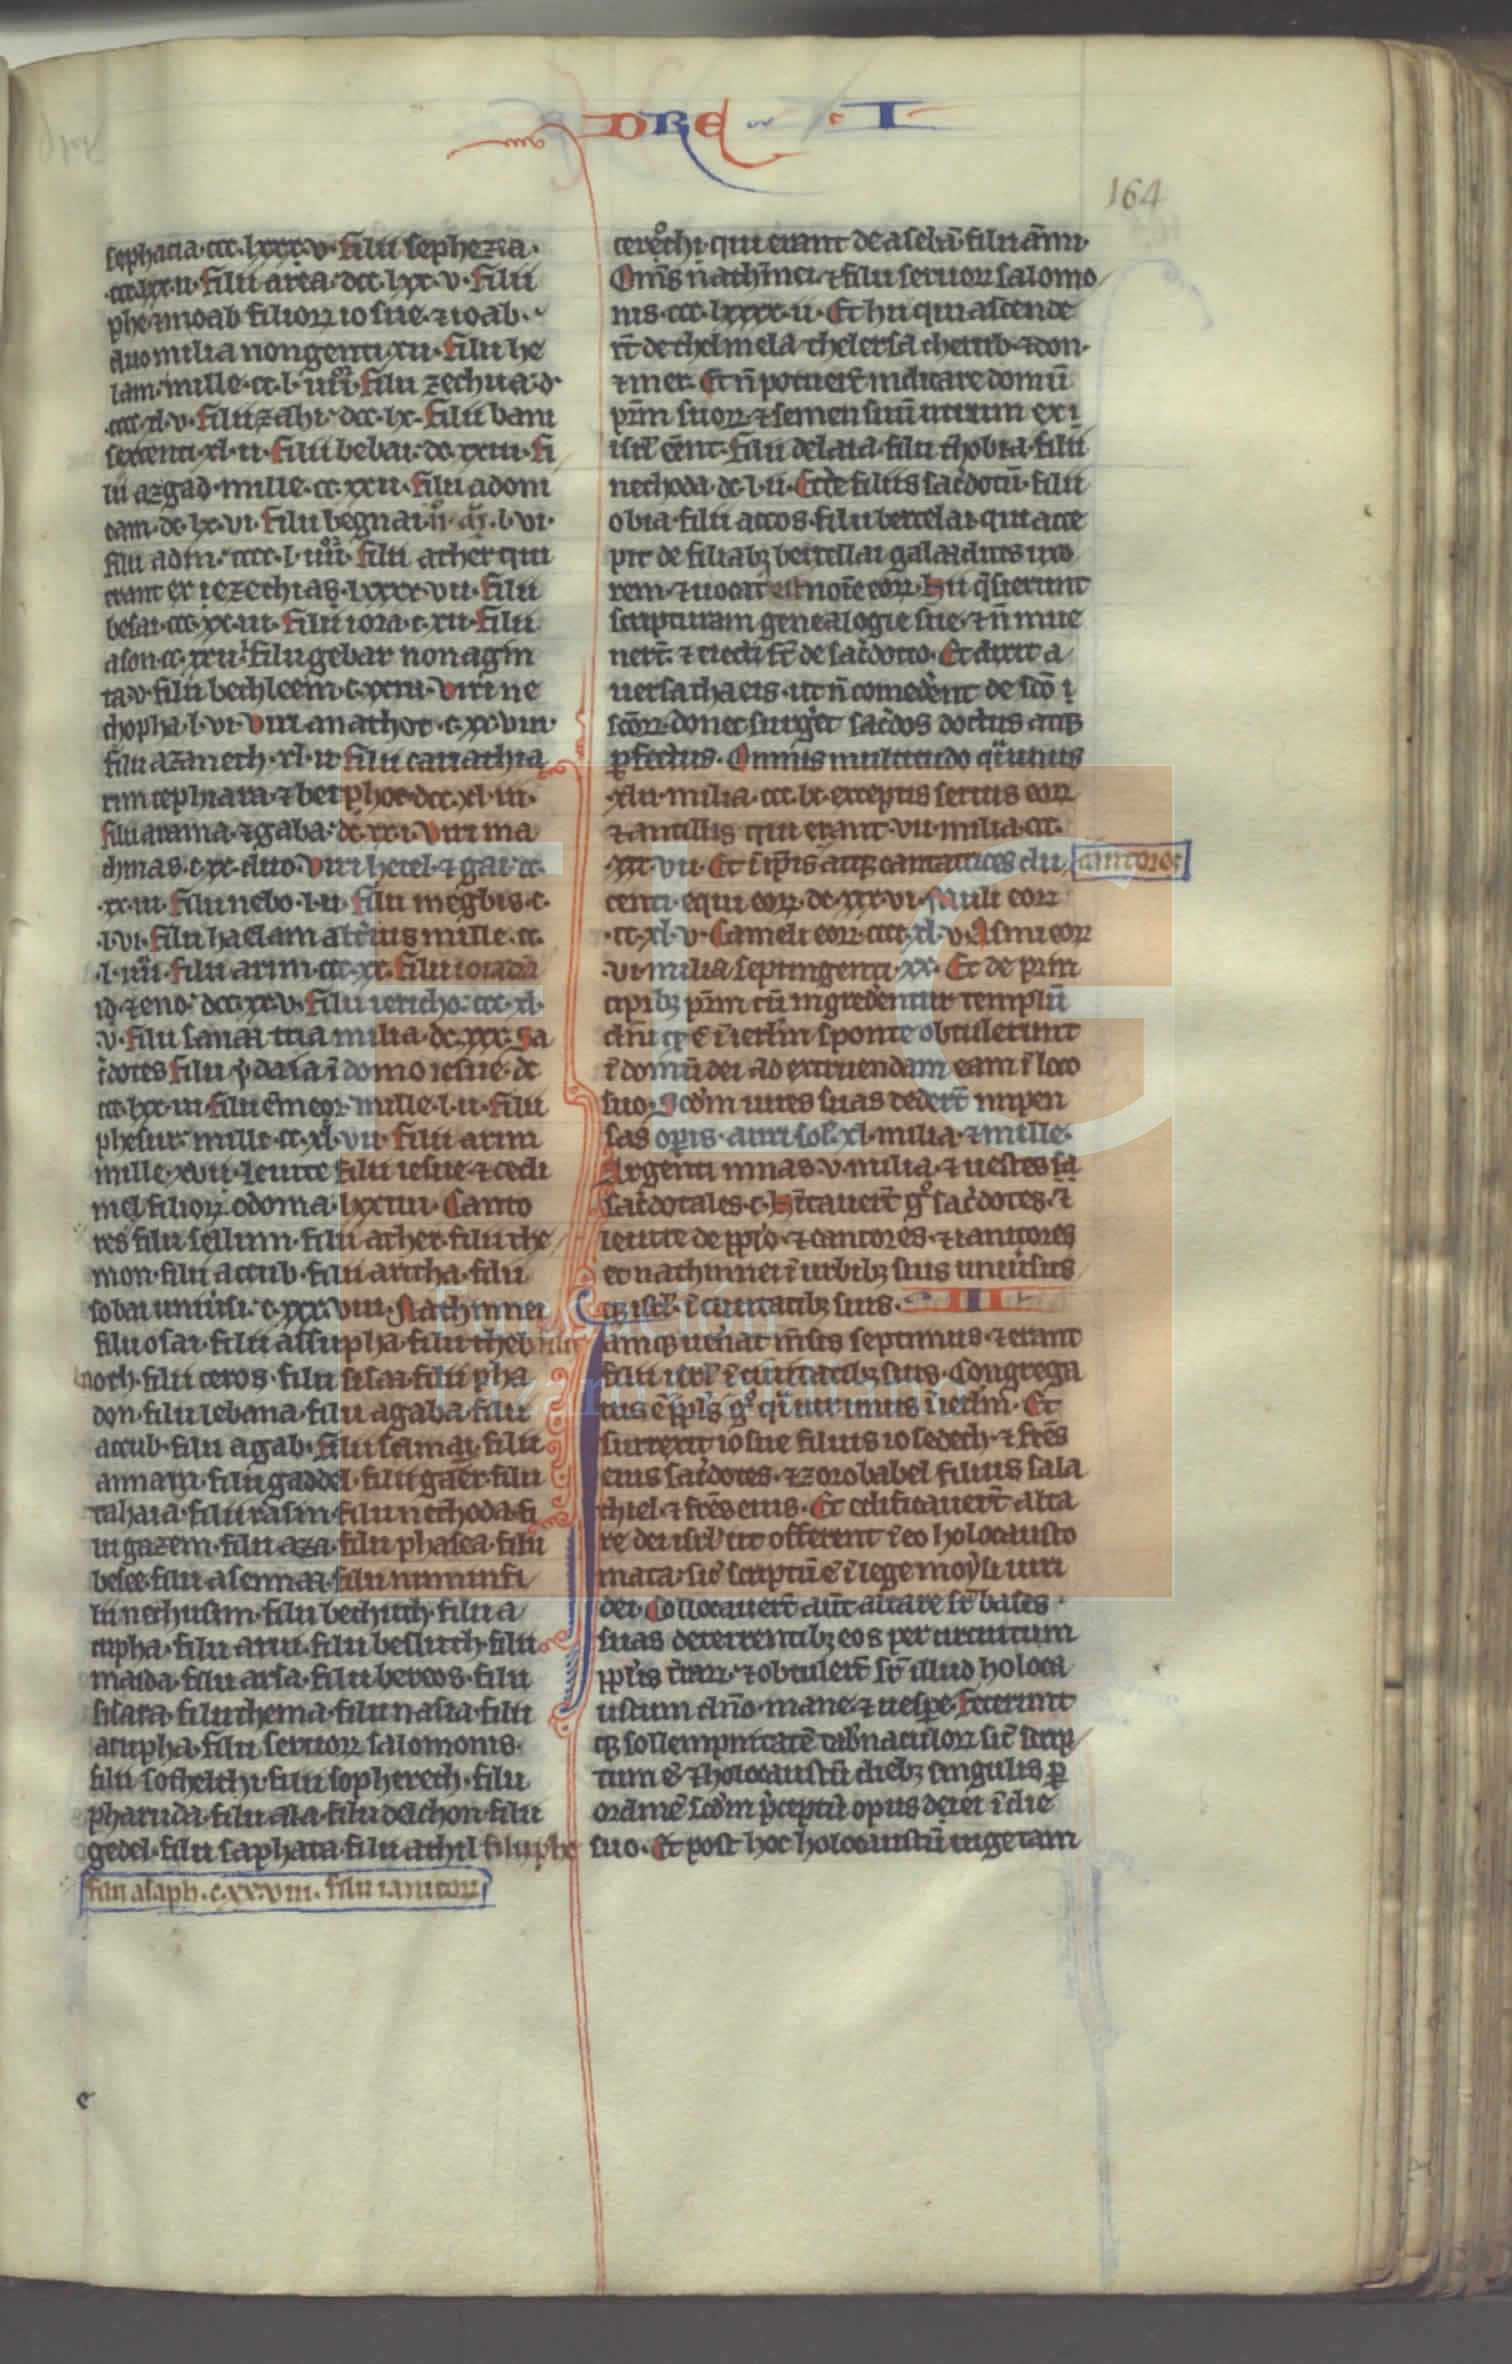 DRE I
164
sephacia· ccc·lxxx·v· filii sephezia·
·ccc·lxx·ii· filii area· dcc·lxx·v· filii
phe·moab filiorꝝ iosue· ⁊ ioab·
duo milia nongenti·xii· filii he
lam· mille·cc·l·iiii· filii zechua· d·
·ccc·xl·v· filii zahi· dcc·lx· filii bani
sexcenti·xl·ii· filii bebai· dc·xxiii· fi
lii azgad· mille·cc·xxii· filii adoni
cam· dc·lx·vi· filii begnai l·vi·
filii adin· cccc·l·iiii· filii ather qui
erant ex iezechias· lxxxx·viii· filii
besai· ccc·xx·iii· filii iora· c·xii· filii
ason·cc·xxii· filii gebar nonagin
ta·v· filii bethleem· c·xxiii· viri ne
chopha· l·vi· viri anathot· c·xx·viii·
filii azmeth· xl·ii· filii cariathia
rim cephiara· ⁊ beroth· dcc·xl·iii·
filii arama· ⁊ gaba· dc·xx·i· viri ma
chmas· c·xx·duo· viri hetel· ⁊ gai· cc·
·xx·iii· filii nebo· l·ii· filii megbis· c·
·l·vi· filii haelam alterius mille·cc·
·l·iiii· filii arim· ccc·xx· filii loradi
id· ⁊ eno· dcc·xx·v· filii iericho· ccc·xl·
·v· filii sanaa tria milia· dc·xxx· sa
cdotes filii ydaia ī domo iesue· dc
cc·lxx·iii· filii emeor· mille·l·ii· filii
phesur· mille·cc·xl·vii· filii arim
mille·xvii· leuite filii iesue· ⁊ cedi
mel filiorꝝ odoma· lxxiiii· Canto
res filii sellum· filii ather· filii thel
mon· filii accub· filii aritha· filii
sobai uniūsi· c·xxx·viiii· Nathinnei
filii osai· filii assupha· filii theb filii
noth· filii ceros· filii sisaa· filii pha
don· filii lebana· filii agaba· filii
accub· filii agab· filii selmai· filii
annam· filii gaddel· filii gaer· filii
rahaia· filii rasin· filii nethoda· fi
lii gazem· filii aza· filii phasea· filii
besee· filii asennaa· filii numin· fi
lii nethusim· filii bechuch· filii a
cupha· filii arui· filii besluth· filii
maida· filii arsa· filii bercos· filii
sisara· filii thema· filii nasia· filii
acupha· filii seruorꝝ salomonis·
filii sothelthi· filii sophereth· filii
pharuda· filii ala· filii delchon· filii
gedel· filii saphata· filii athil filii phe
filii asaph· c·xx·viii· filii ianitorꝝ
e
cerethi· qui erant de asebī· filii āmi·
Om̄s nathīnei· ⁊ filii seruorꝝ salomo
nis· ccc·lxxxx·ii· Et hii qui ascende
rt̄ de thelmela· thelersa· cherub· ⁊ don·
⁊ mer· Et n̄ potuerr̄ indicare domū
pr̄m suorꝝ· ⁊ semen suū utrum ex i
isrl̄ eēnt· filii delaia· filii thobia· filii
nechoda· dc·l·ii· Et de filiis sacdotū· filii
obia· filii accos· filii bercelai· qui acce
pit de filiabꝫ bercellai galaaditis uxo
rem· ⁊ uocat est noīe eorꝝ· Hii q̄sierunt
scripturam genealogie sue· ⁊ n̄ inue
nert̄· ⁊ eiecti st̄ de sacdotio· Et dixit a
uersatha eis· ut n̄ comedēnt de scō i
scōrꝝ· donec surgēt sacdos doctus atqꝫ
ꝑfectus· Omnis multitudo q̄i unus
·xlii·milia· ccc·lx· exceptis seruis eorꝝ
⁊ ancillis qui erant· vii·milia·ccc·
·xxx·vii· Et ī ip̄is atqꝫ cantatrices du
cantores
centi· equi eorꝝ· dc·xxx·vi· Muli eorꝝ
·cc·xl·v· Cameli eorꝝ· cccc·xxx·v· Asini eorꝝ
·vi·milia septingenti·xx· Et de prin
cipibꝫ pr̄m cū ingrederentur templū
dn̄i q̄ ē ī ierl̄m sponte obtulerunt
ī domū dei ad extruendam eam ī loco
suo· Scdm uires suas dedert̄ inpen
sas opis· auri sol̄· xl·milia· ⁊ mille·
Argenti mnas· v·milia· ⁊ uestes sa
sacdotales· c· Hītauert̄ gͦ sacdotes· ⁊
leuite de pplo· ⁊ cantores· ⁊ ianitores
⁊ nathinnei ī urbibꝫ suis uniūsus
qꝫ isrl̄ ī ciuitatibꝫ suis· III
Iamqꝫ uēnat m̄sis septimus· ⁊ erant
filii isrl̄ ī ciuitatibꝫ suis· Congrega
tus ē ppls gͦ q̄i uir unus ī ierl̄m· Et
surrexit iosue filius iosedech· ⁊ frēs
eius sacdotes· ⁊ zorobabel filius sala
thiel· ⁊ frēs eius· Et edificauert̄ alta
re dei isrl̄ ut offerrent ī eo holocausto
mata· sic̄ scriptū ē ī lege moysi uiri
dei· Collocauert̄ aūt altare sr̄ bases
suas deterrentibꝫ eos per circuitum
pplis trarꝝ· ⁊ obtulert̄ sr̄ illud holoca
ustum dn̄o· mane· ⁊ uespe· Fecerunt
qꝫ sollempnitatē tabnaculorꝝ sic̄ scrip
tum ē· ⁊ holocaustū diebꝫ singulis ꝑ
ordinē scdm p̄ceptū opus diei ī die
suo· Et post hoc holocaustū iugetam